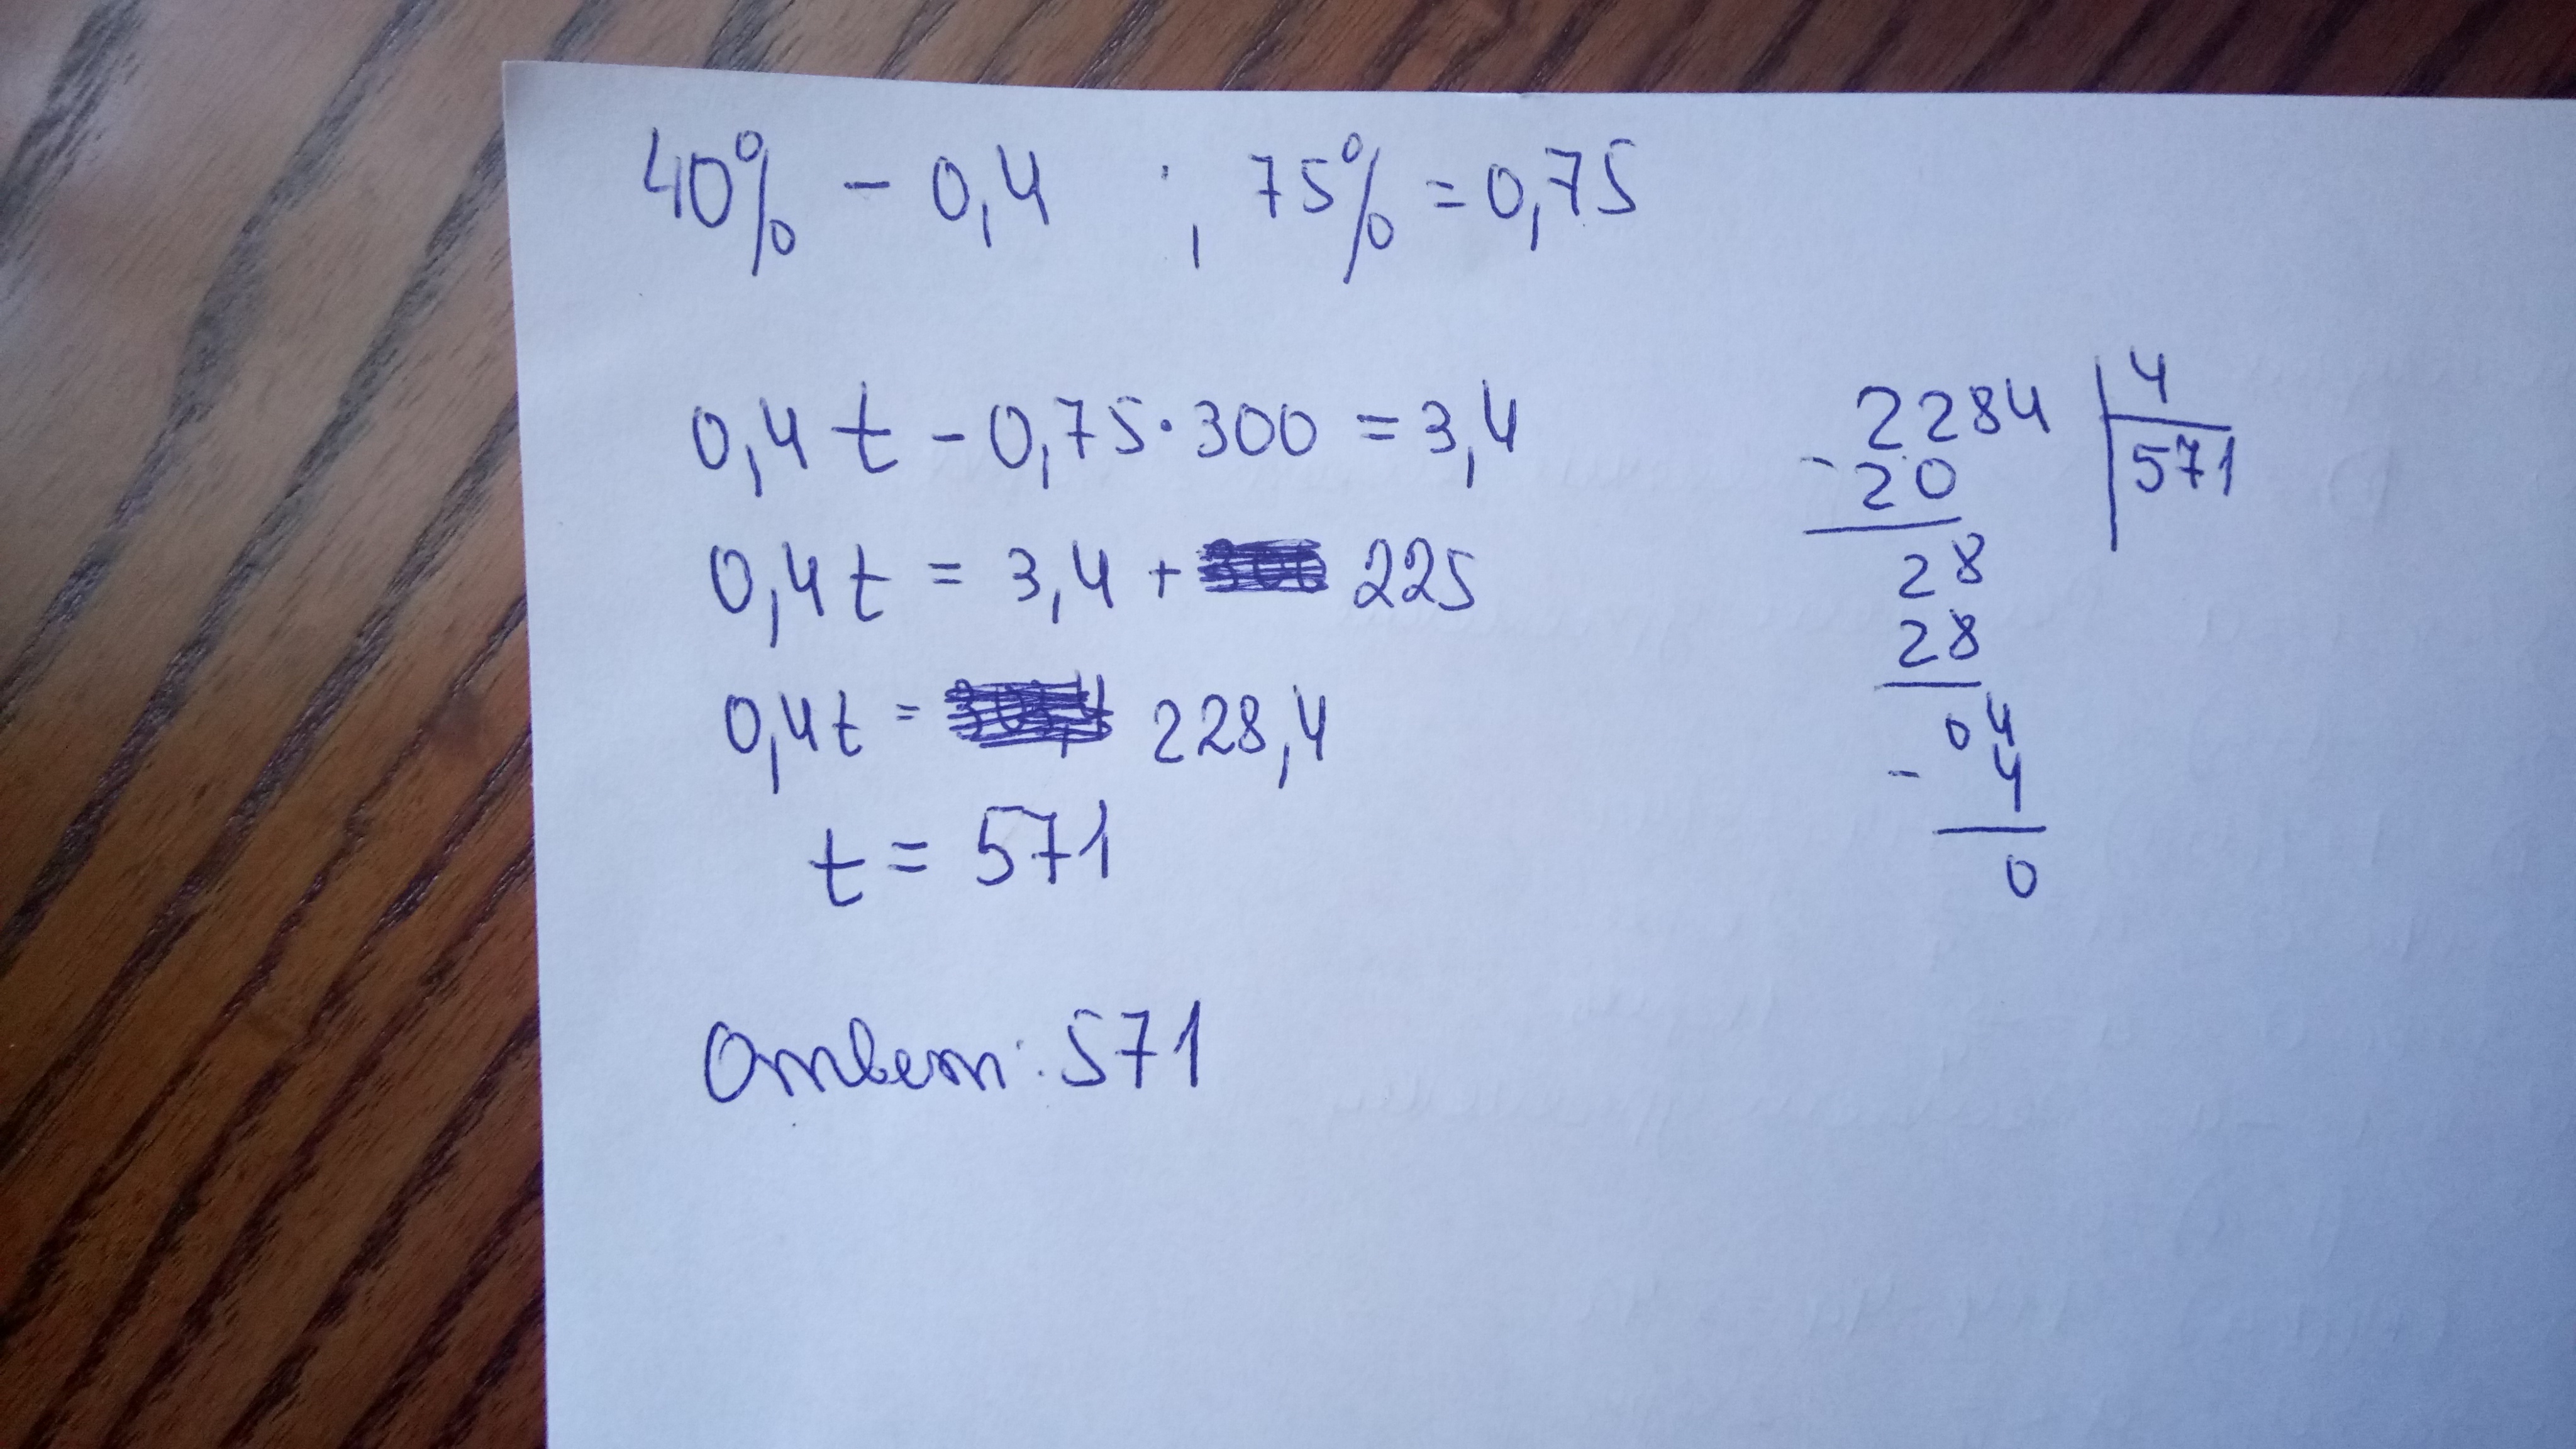 40% - 0,4 ; 75% = 0,75
0,4 t - 0,75·300 = 3,4
0,4 t = 3,4 + 225
0,4t = 228,4
t = 571
Ответ: 571
- 2284 | 4
20 | 571
28
28
04
- 4
0